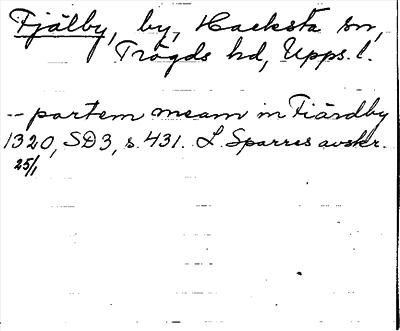 Fjälby, by, Hacksta sn,
Trögds hd, Upps. l.
-- partem meam in Fiærdby
1320, SD3, s. 431. L. Sparres avskr.
25/1